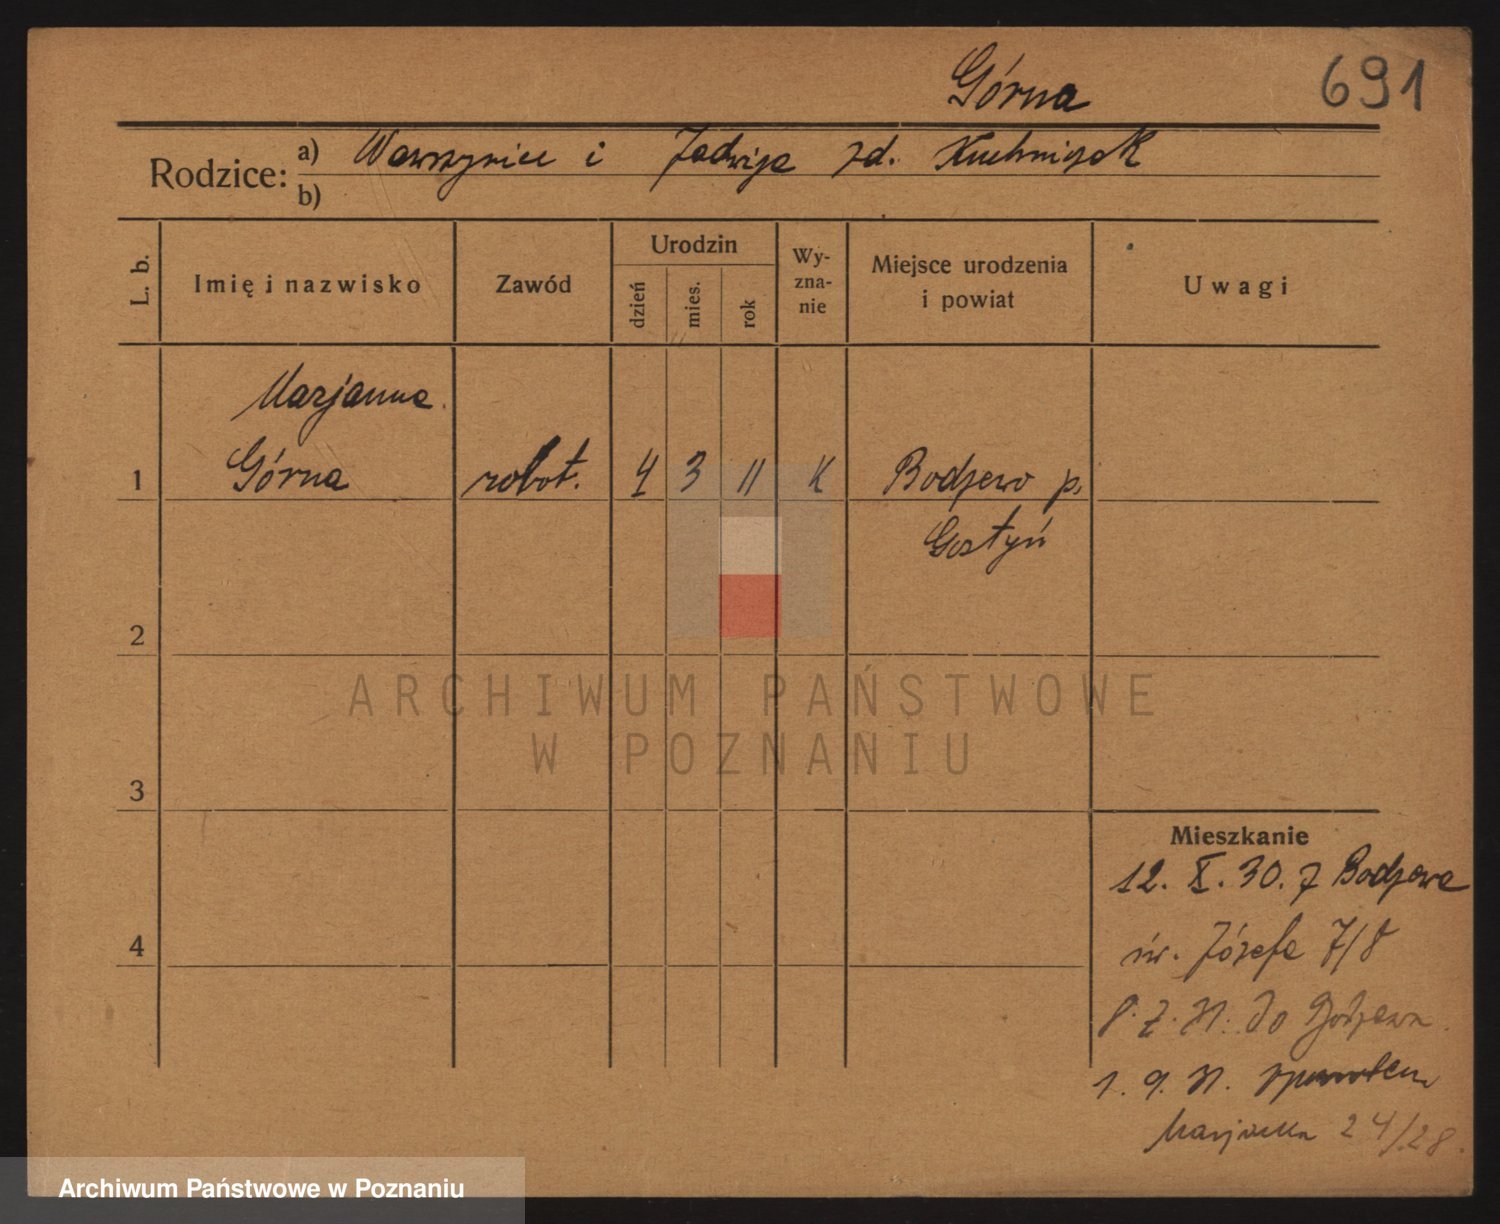 Górna 691
Rodzice: a) Wawrzyniec i Jadwiga zd. Kuchniczak
b)
L. b. Imię i nazwisko Zawód Urodzin dzień mies. rok Wy-zna-nie Miejsce urodzenia i powiat Uwagi
Marjanna
1 Górna robot. 4 3 11 K Bodzewo p.
Gostyń
2
ARCHIWUM PAŃSTWOWE
W POZNANIU
3
Mieszkanie
12. X. 30. z Bodzewa
4 św. Józefa 7/8
do Bodzewa
1. 9. 31. z powrotem
24/28.
Archiwum Państwowe w Poznaniu